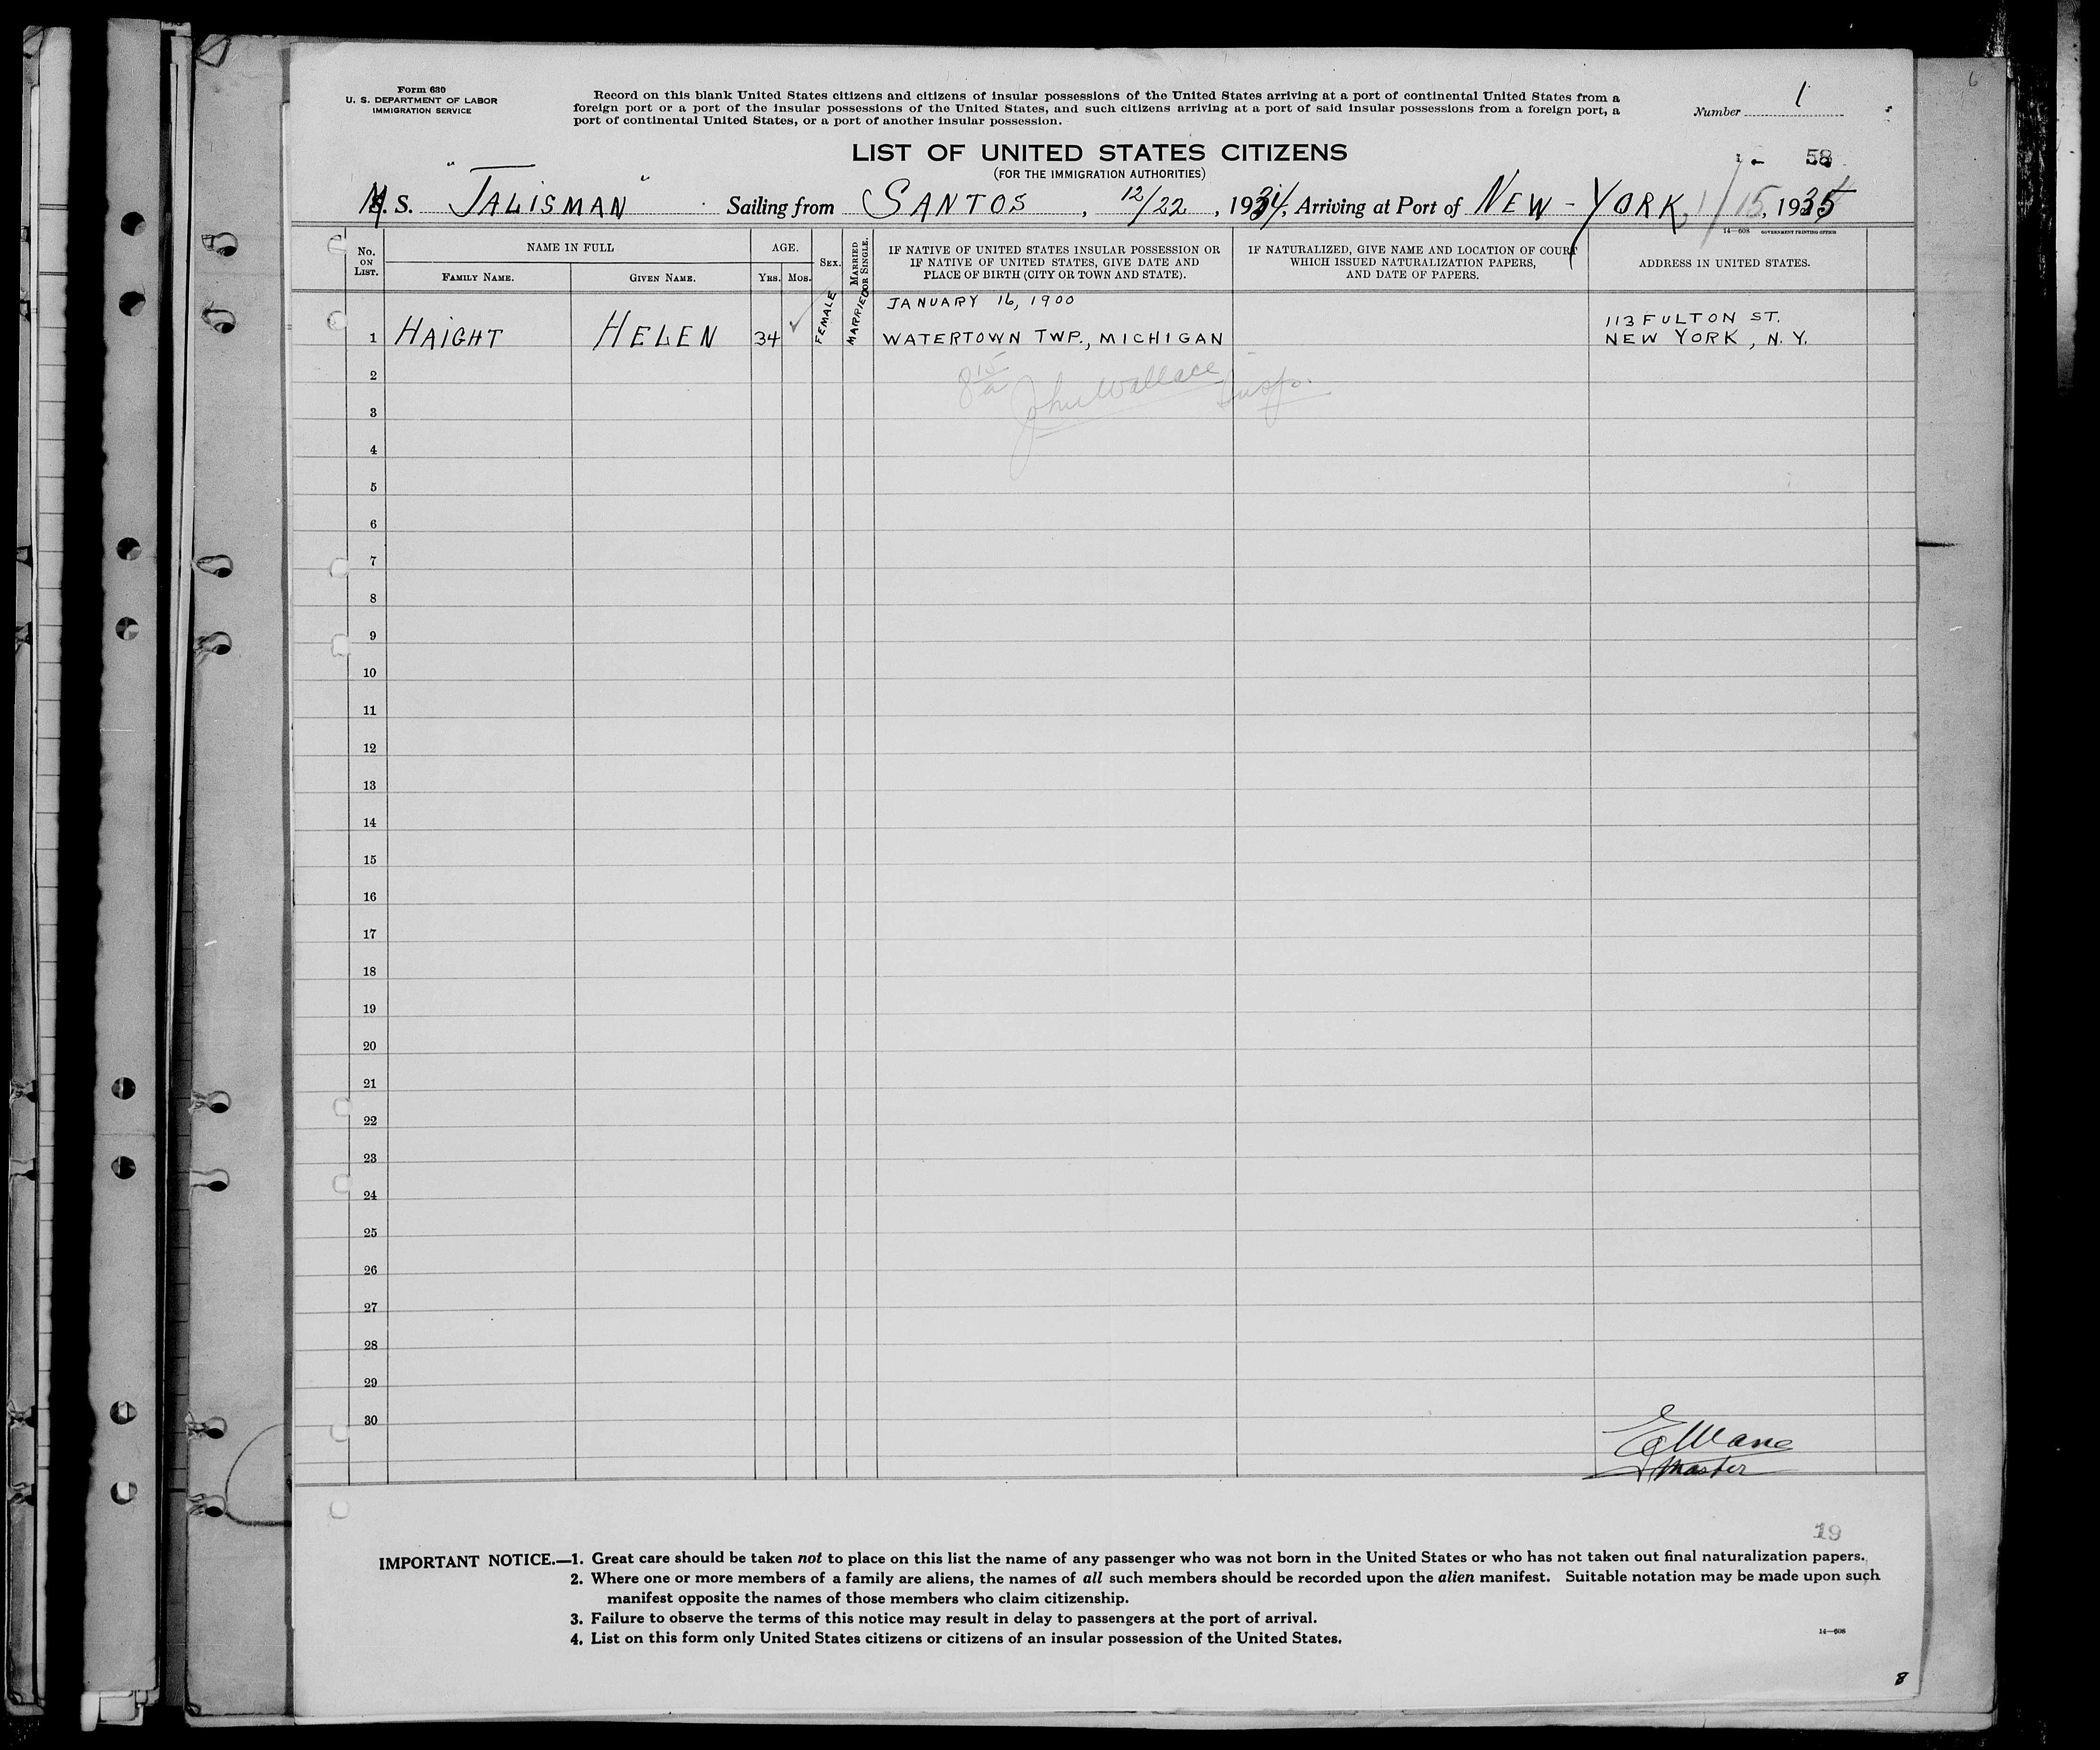 6
Form 630
U. S. DEPARTMENT OF LABOR
IMMIGRATION SERVICE
Record on this blank United States citizens and citizens of insular possessions of the United States arriving at a port of continental United States from a
foreign port or a port of the insular possessions of the United States, and such citizens arriving at a port of said insular possessions from a foreign port, a
port of continental United States, or a port of another insular possession.
Number 1
LIST OF UNITED STATES CITIZENS
(FOR THE IMMIGRATION AUTHORITIES)
58
M. S. "TALISMAN" Sailing from SANTOS, 12/22, 1934, Arriving at Port of NEW-YORK, 1/15, 1935
14—608 GOVERNMENT PRINTING OFFICE
No. ON LIST.
NAME IN FULL
FAMILY NAME.
GIVEN NAME.
AGE.
YRS. MOS.
SEX.
MARRIED OR SINGLE.
IF NATIVE OF UNITED STATES INSULAR POSSESSION OR
IF NATIVE OF UNITED STATES, GIVE DATE AND
PLACE OF BIRTH (CITY OR TOWN AND STATE).
IF NATURALIZED, GIVE NAME AND LOCATION OF COURT
WHICH ISSUED NATURALIZATION PAPERS,
AND DATE OF PAPERS.
ADDRESS IN UNITED STATES.
1 HAIGHT HELEN 34 ✓ FEMALE MARRIED
JANUARY 16, 1900
WATERTOWN TWP., MICHIGAN
113 FULTON ST.
NEW YORK, N.Y.
2
John Wallace Insp.
3
4
5
6
7
8
9
10
11
12
13
14
15
16
17
18
19
20
21
22
23
24
25
26
27
28
29
30
Master
19
IMPORTANT NOTICE.—1. Great care should be taken not to place on this list the name of any passenger who was not born in the United States or who has not taken out final naturalization papers.
2. Where one or more members of a family are aliens, the names of all such members should be recorded upon the alien manifest. Suitable notation may be made upon such
manifest opposite the names of those members who claim citizenship.
3. Failure to observe the terms of this notice may result in delay to passengers at the port of arrival.
4. List on this form only United States citizens or citizens of an insular possession of the United States.
14—608
8